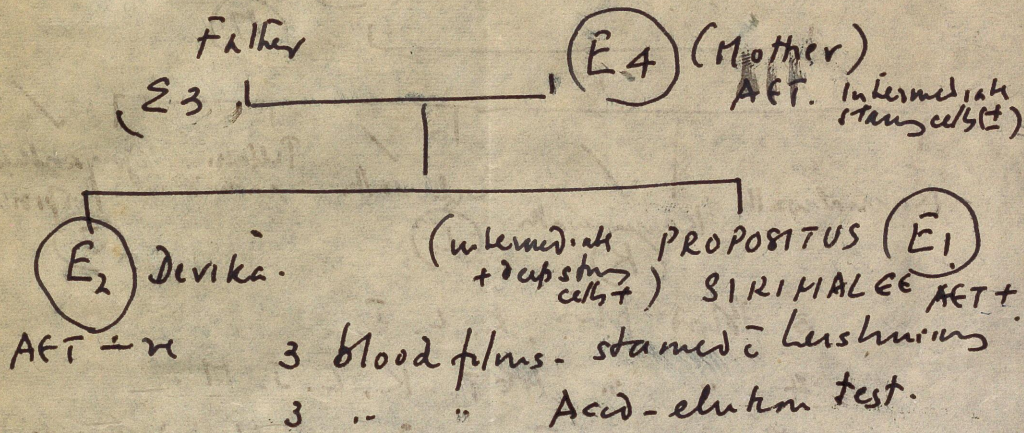 Father
E3
E4 (Mother)
AET. Intermediate
staing cells (±)
E2 Devika.
AET -ve
(intermediate
+ deep staing
cells +)
PROPOSITUS E1
SIRIMALEE AET+.
3 blood films - stained c̄ Leishmans
3 " " Acid-elution test.